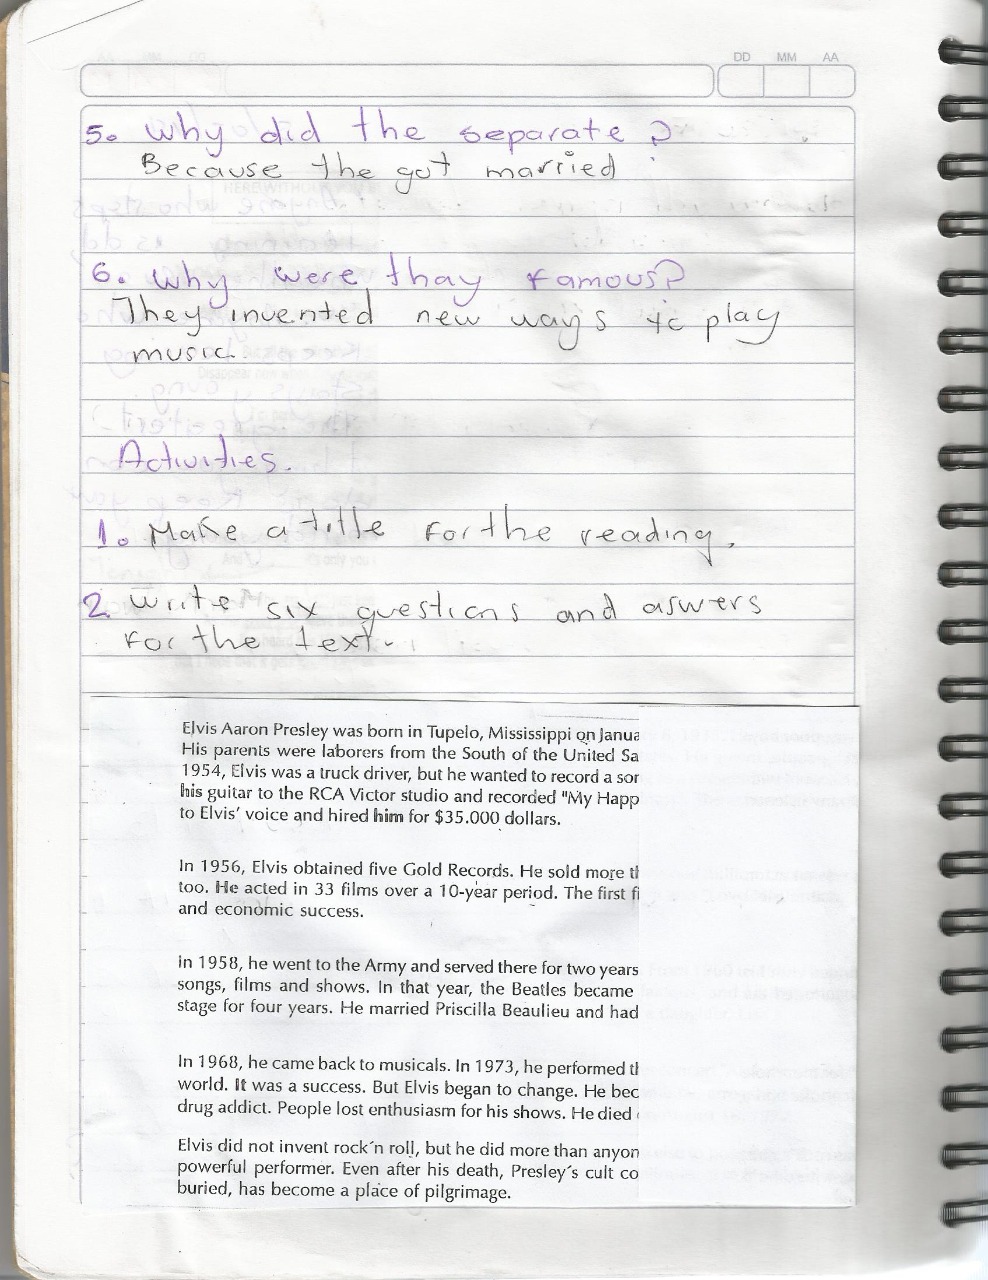 DD MM AA
5. Why did the separate?
Because the got married
6. Why were thay famous?
They invented new ways to play
music.
Activities.
1. Make a title for the reading.
2. Write six questions and aswers
for the text.
Elvis Aaron Presley was born in Tupelo, Mississippi on Janua
His parents were laborers from the South of the United Sa
1954, Elvis was a truck driver, but he wanted to record a sor
his guitar to the RCA Victor studio and recorded "My Happ
to Elvis' voice and hired him for $35.000 dollars.
In 1956, Elvis obtained five Gold Records. He sold more tl
too. He acted in 33 films over a 10-year period. The first fi
and economic success.
In 1958, he went to the Army and served there for two years
songs, films and shows. In that year, the Beatles became
stage for four years. He married Priscilla Beaulieu and had
In 1968, he came back to musicals. In 1973, he performed tl
world. It was a success. But Elvis began to change. He bec
drug addict. People lost enthusiasm for his shows. He died
Elvis did not invent rock´n roll, but he did more than anyon
powerful performer. Even after his death, Presley´s cult co
buried, has become a place of pilgrimage.